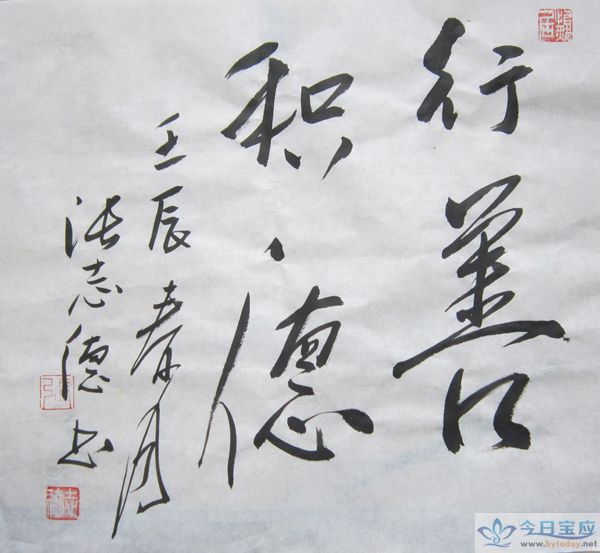 行善
积德
壬辰春月
张志德书
今日宝应
www.bytoday.net